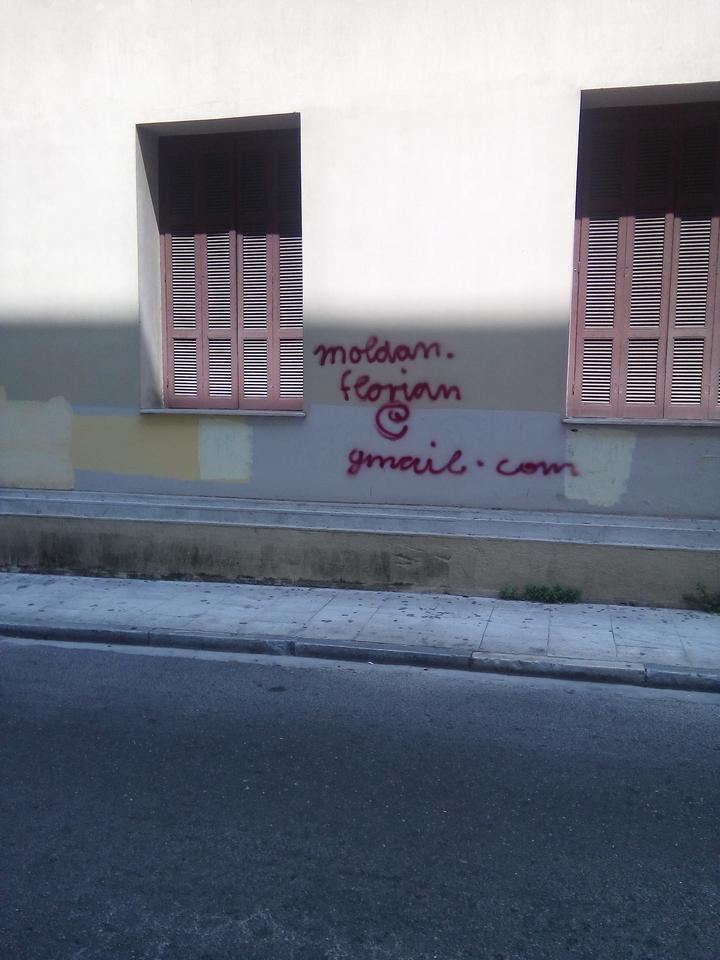 moldan.
florian
@
gmail.com